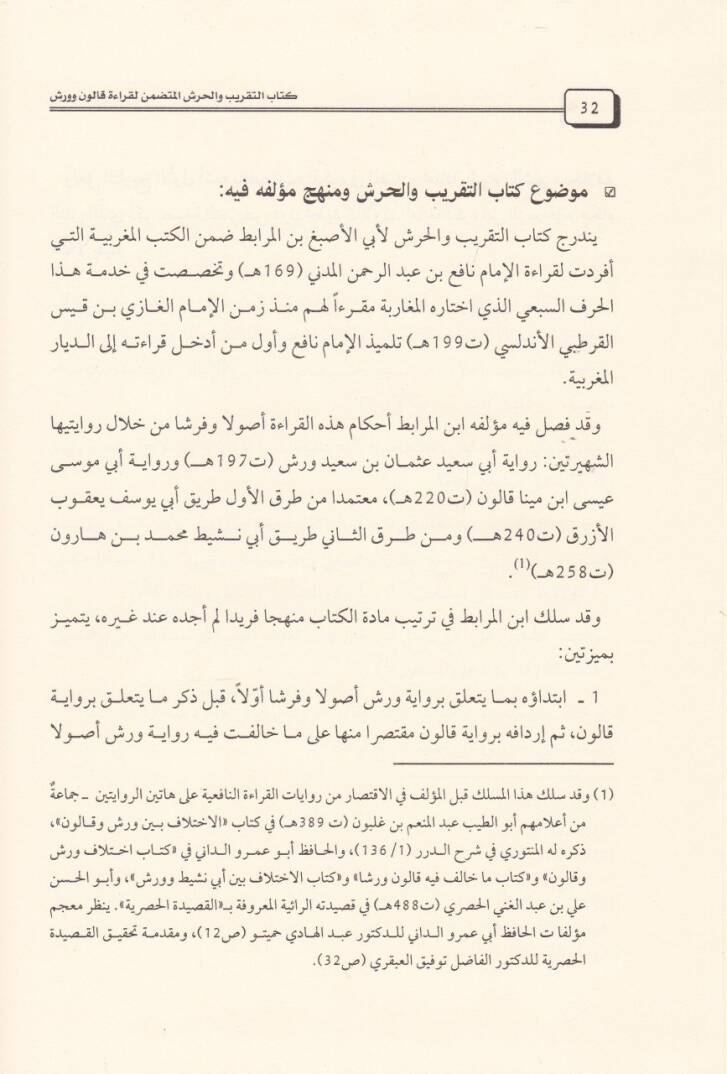 كتاب التقريب والحرش المتضمن لقراءة قالون وورش
32
موضوع كتاب التقريب والحرش ومنهج مؤلفه فيه:
يندرج كتاب التقريب والحرش لأبي الأصبغ بن المرابط ضمن الكتب المغربية التي
أفردت لقراءة الإمام نافع بن عبد الرحمن المدني (169هـ) وتخصصت في خدمة هذا
الحرف السبعي الذي اختاره المغاربة مقرءاً لهم منذ زمن الإمام الغازي بن قيس
القرطبي الأندلسي (ت199هـ) تلميذ الإمام نافع وأول من أدخل قراءته إلى الديار
المغربية.
وقد فصل فيه مؤلفه ابن المرابط أحكام هذه القراءة أصولا وفرشا من خلال روايتيها
الشهيرتين: رواية أبي سعيد عثمان بن سعيد ورش (ت197هـ) ورواية أبي موسى
عيسى ابن مينا قالون (ت220هـ)، معتمدا من طرق الأول طريق أبي يوسف يعقوب
الأزرق (ت240هـ) ومن طرق الثاني طريق أبي نشيط محمد بن هارون
(ت258هـ)(1).
وقد سلك ابن المرابط في ترتيب مادة الكتاب منهجا فريدا لم أجده عند غيره، يتميز
بميزتين:
1 ـ ابتداؤه بما يتعلق برواية ورش أصولا وفرشا أوّلاً، قبل ذكر ما يتعلق برواية
قالون، ثم إردافه برواية قالون مقتصرا منها على ما خالفت فيه رواية ورش أصولا
(1) وقد سلك هذا المسلك قبل المؤلف في الاقتصار من روايات القراءة النافعية على هاتين الروايتين ـ جماعةٌ
من أعلامهم أبو الطيب عبد المنعم بن غلبون (ت 389هـ) في كتاب «الاختلاف بين ورش وقالون»،
ذكره له المنتوري في شرح الدرر (1/ 136)، والحافظ أبو عمرو الداني في «كتاب اختلاف ورش
وقالون» و«كتاب ما خالف فيه قالون ورشا» و«كتاب الاختلاف بين أبي نشيط وورش»، وأبو الحسن
علي بن عبد الغني الحصري (ت488هـ) في قصيدته الرائية المعروفة بـ«القصيدة الحصرية». ينظر معجم
مؤلفات الحافظ أبي عمرو الداني للدكتور عبد الهادي حميتو (ص12)، ومقدمة تحقيق القصيدة
الحصرية للدكتور الفاضل توفيق العبقري (ص32).